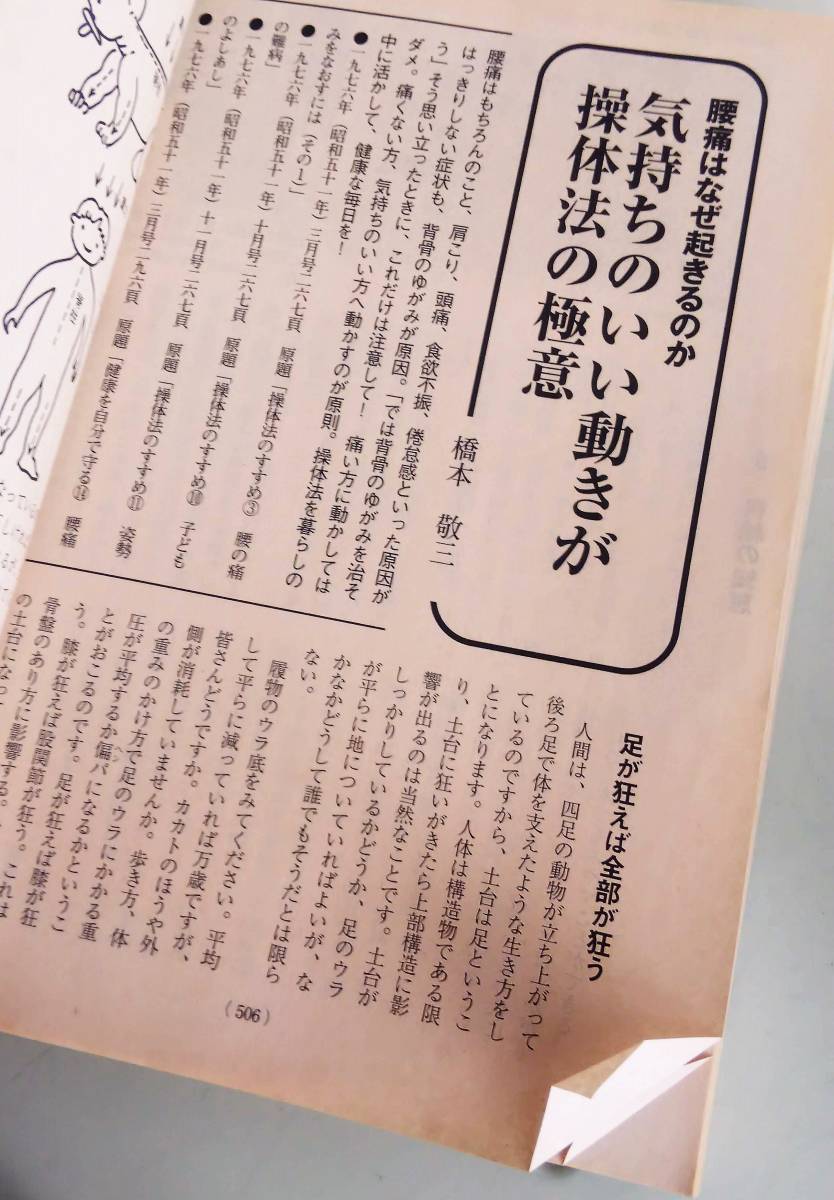 腰痛はなぜ起きるのか
気持ちのいい動きが
操体法の極意
橋本 敬三
腰痛はもちろんのこと、肩こり、頭痛、食欲不振、倦怠感といった原因が
はっきりしない症状も、背骨のゆがみが原因。「では背骨のゆがみを治そ
う」そう思い立ったときに、これだけは注意して! 痛い方に動かしては
ダメ。痛くない方、気持ちのいい方へ動かすのが原則。操体法を暮らしの
中に活かして、健康な毎日を!
●一九七六年(昭和五十一年)三月号二六七頁 原題「操体法のすすめ③ 腰の痛
みをなおすには(その1)」
●一九七六年(昭和五十一年)十月号二六七頁 原題「操体法のすすめ⑩ 子ども
の難病」
●一九七六年(昭和五十一年)十一月号二六七頁 原題「操体法のすすめ⑪ 姿勢
のよしあし」
●一九七六年(昭和五十一年)三月号二九六頁 原題「健康を自分で守る⑭ 腰痛
足が狂えば全部が狂う
人間は、四足の動物が立ち上がって
後ろ足で体を支えたような生き方をし
ているのですから、土台は足というこ
とになります。人体は構造物である限
り、土台に狂いがきたら上部構造に影
響が出るのは当然なことです。土台が
しっかりしているかどうか、足のウラ
が平らに地についていればよいが、な
かなかどうして誰でもそうだとは限ら
ない。
履物のウラ底をみてください。平均
して平らに減っていれば万歳ですが、
皆さんどうですか。カカトのほうや外
側が消耗していませんか。歩き方、体
の重みのかけ方で足のウラにかかる重
圧が平均するか偏パになるかというこ
とがおこるのです。足が狂えば膝が狂
う。膝が狂えば股関節が狂う。これは
骨盤のあり方に影響する。
の土台になっ
(506)